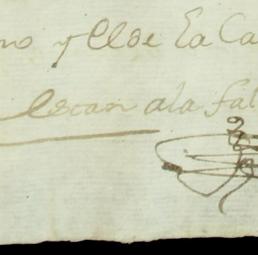 no y el de la Ca
lecan ala fal